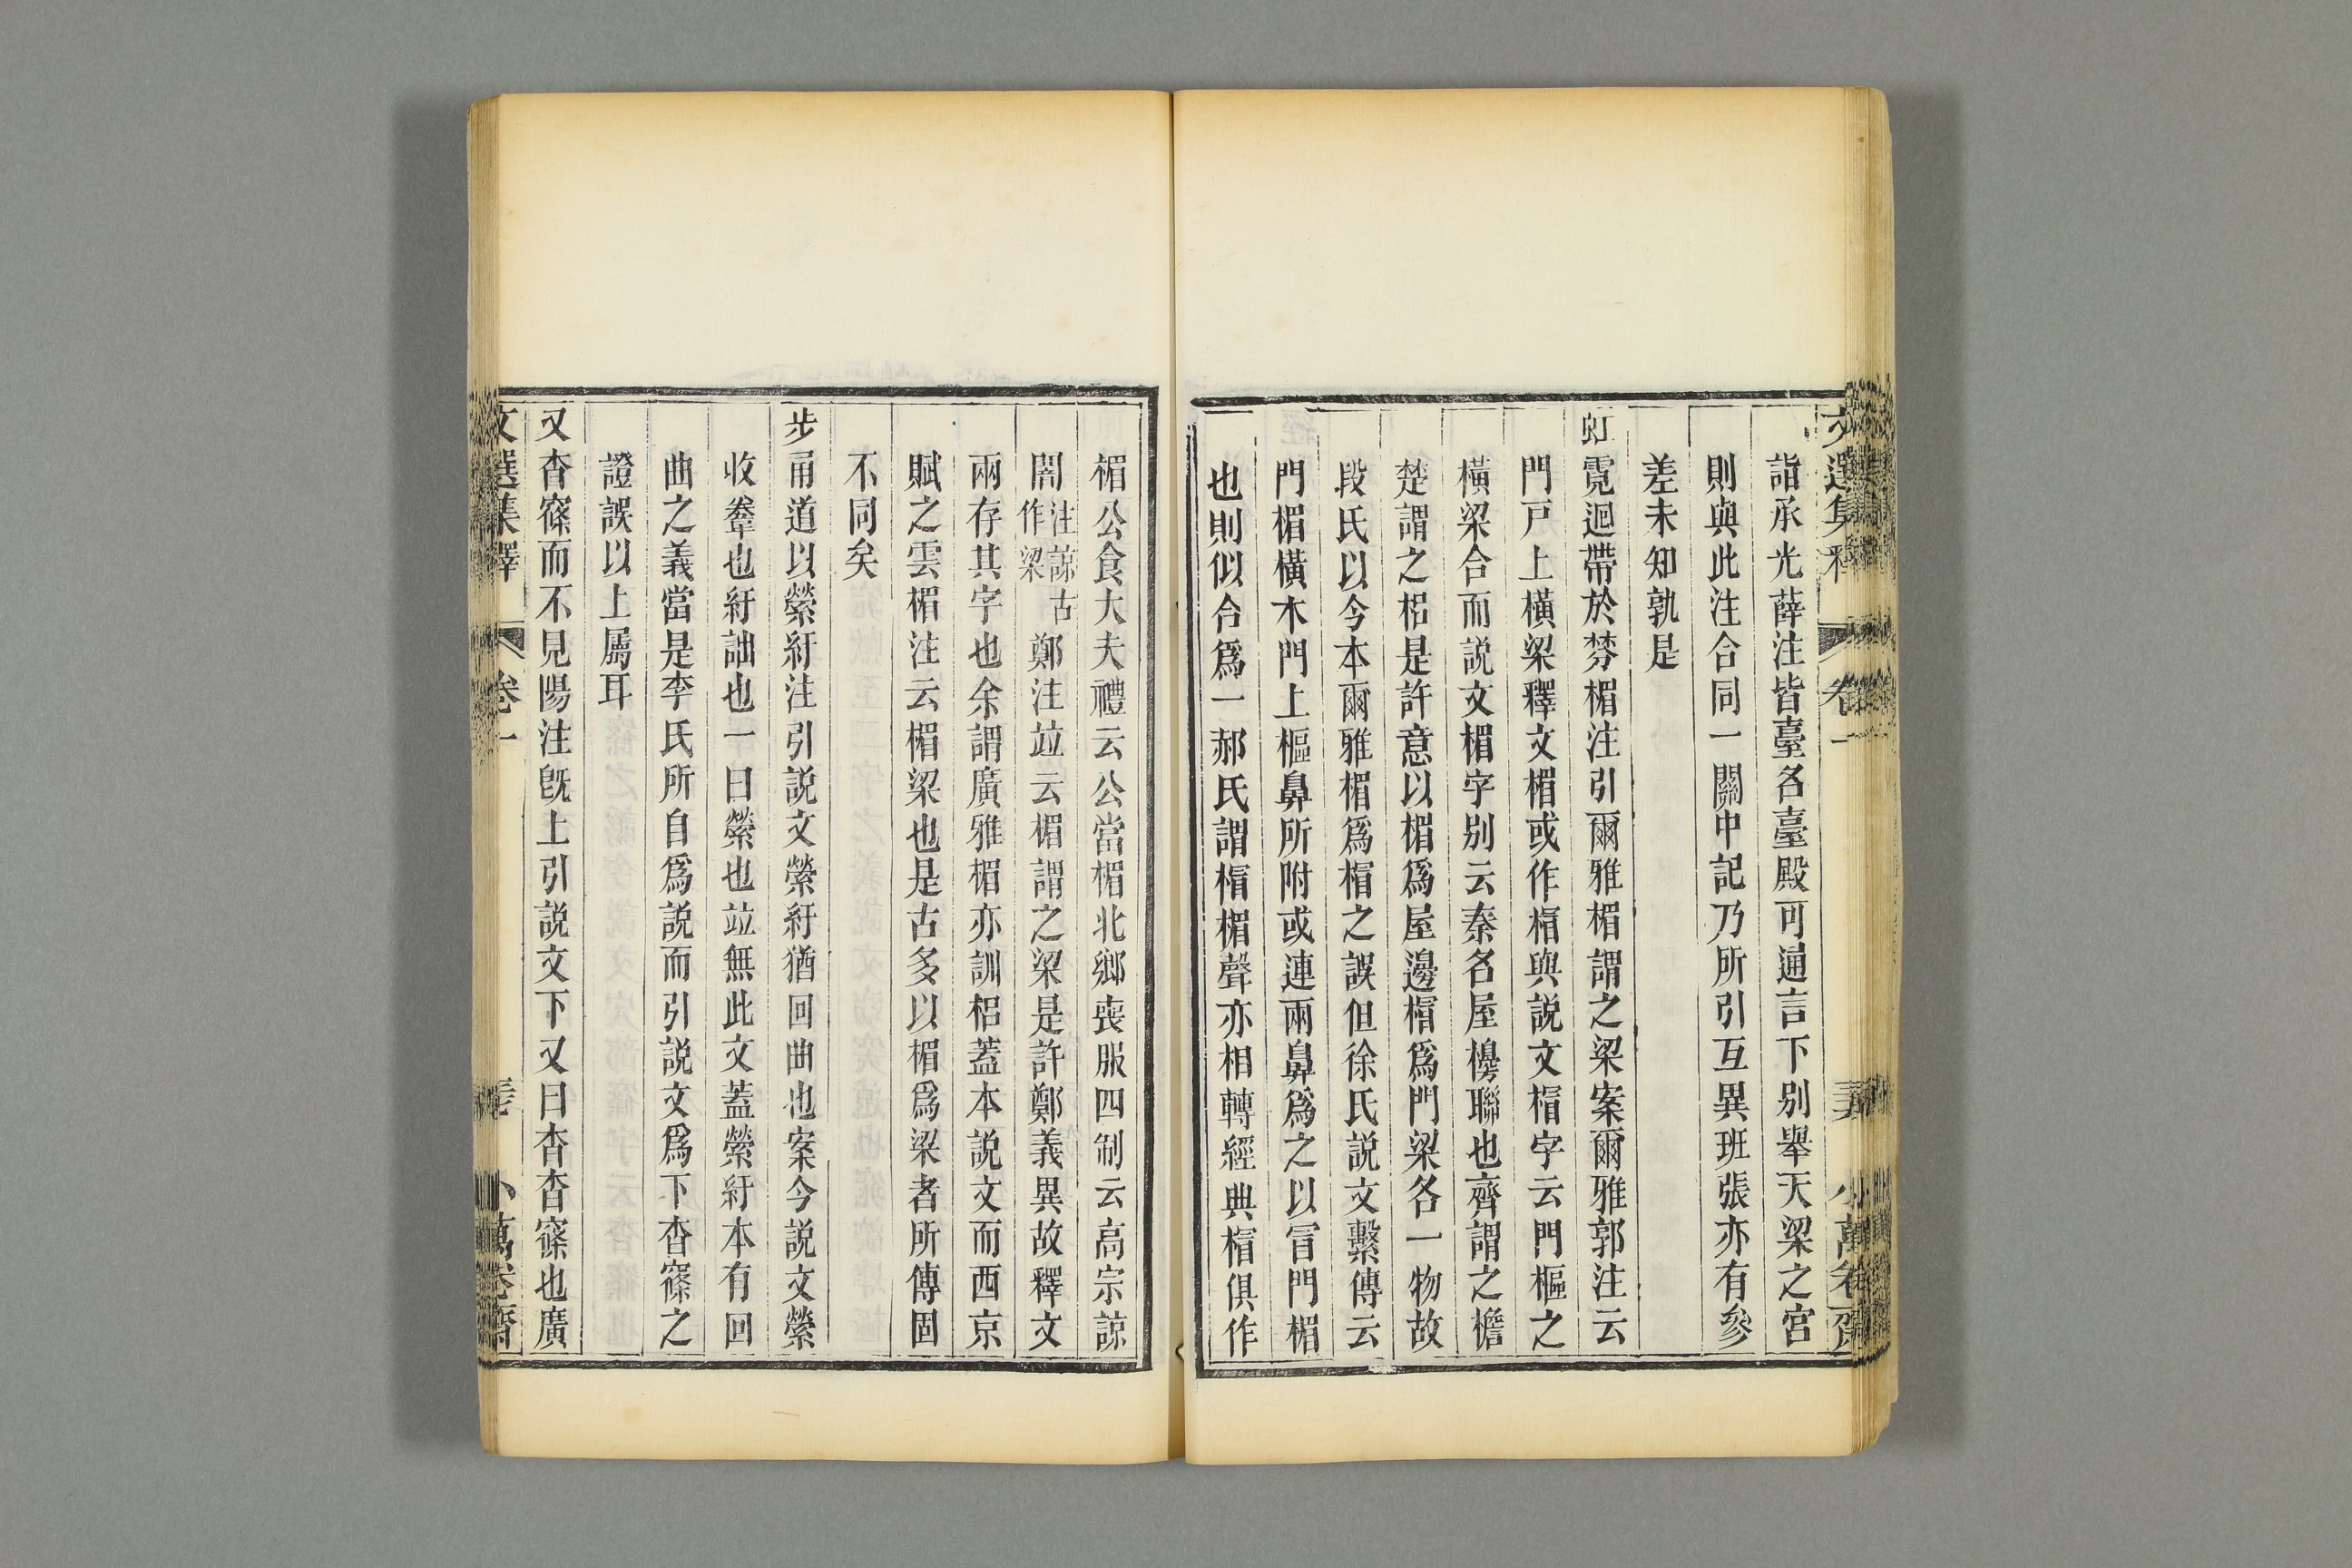 文選集釋 卷一 小萬卷齋
詣承光薛注皆臺名臺殿可通言下別舉天梁之宮
則與此注合同一關中記乃所引互異班張亦有參
差未知孰是
虹霓迴帶於棼楣注引爾雅楣謂之梁案爾雅郭注云
門戸上橫梁釋文楣或作楣與說文楣字云門樞之
橫梁合而說文楣字別云秦名屋櫋聯也齊謂之檐
楚謂之梠是許意以楣爲屋邊楣爲門梁各一物故
段氏以今本爾雅楣爲楣之誤但徐氏說文繫傳云
門楣橫木門上樞鼻所附或連兩鼻爲之以冒門楣
也則似合爲一郝氏謂楣楣聲亦相轉經典楣俱作
楣公食大夫禮云公當楣北鄉喪服四制云高宗諒
闇注諒古作梁鄭注竝云楣謂之梁是許鄭義異故釋文
兩存其字也余謂廣雅楣亦訓梠蓋本說文而西京
賦之雲楣注云楣梁也是古多以楣爲梁者所傳固
不同矣
步甬道以縈紆注引説文縈紆猶回曲也案今説文縈
收韏也紆詘也一曰縈也竝無此文蓋縈紆本有回
曲之義當是李氏所自爲説而引説文爲下杳窱之
證誤以上屬耳
又杳窱而不見陽注旣上引説文下又曰杳杳窱也廣
文選集釋 卷一 小萬卷齋